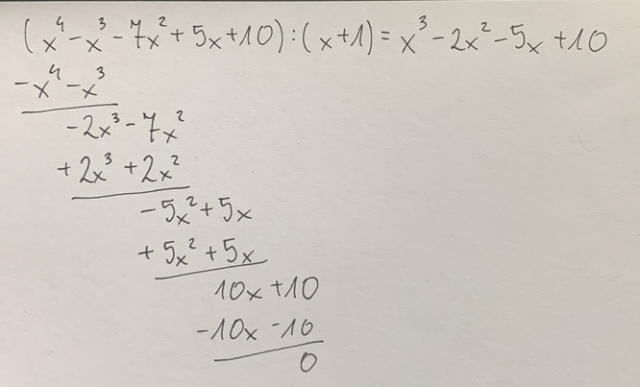 (x⁴ - x³ - 7x² + 5x + 10) : (x + 1) = x³ - 2x² - 5x + 10
- x⁴ - x³
- 2x³ - 7x²
+ 2x³ + 2x²
- 5x² + 5x
+ 5x² + 5x
10x + 10
- 10x - 10
0